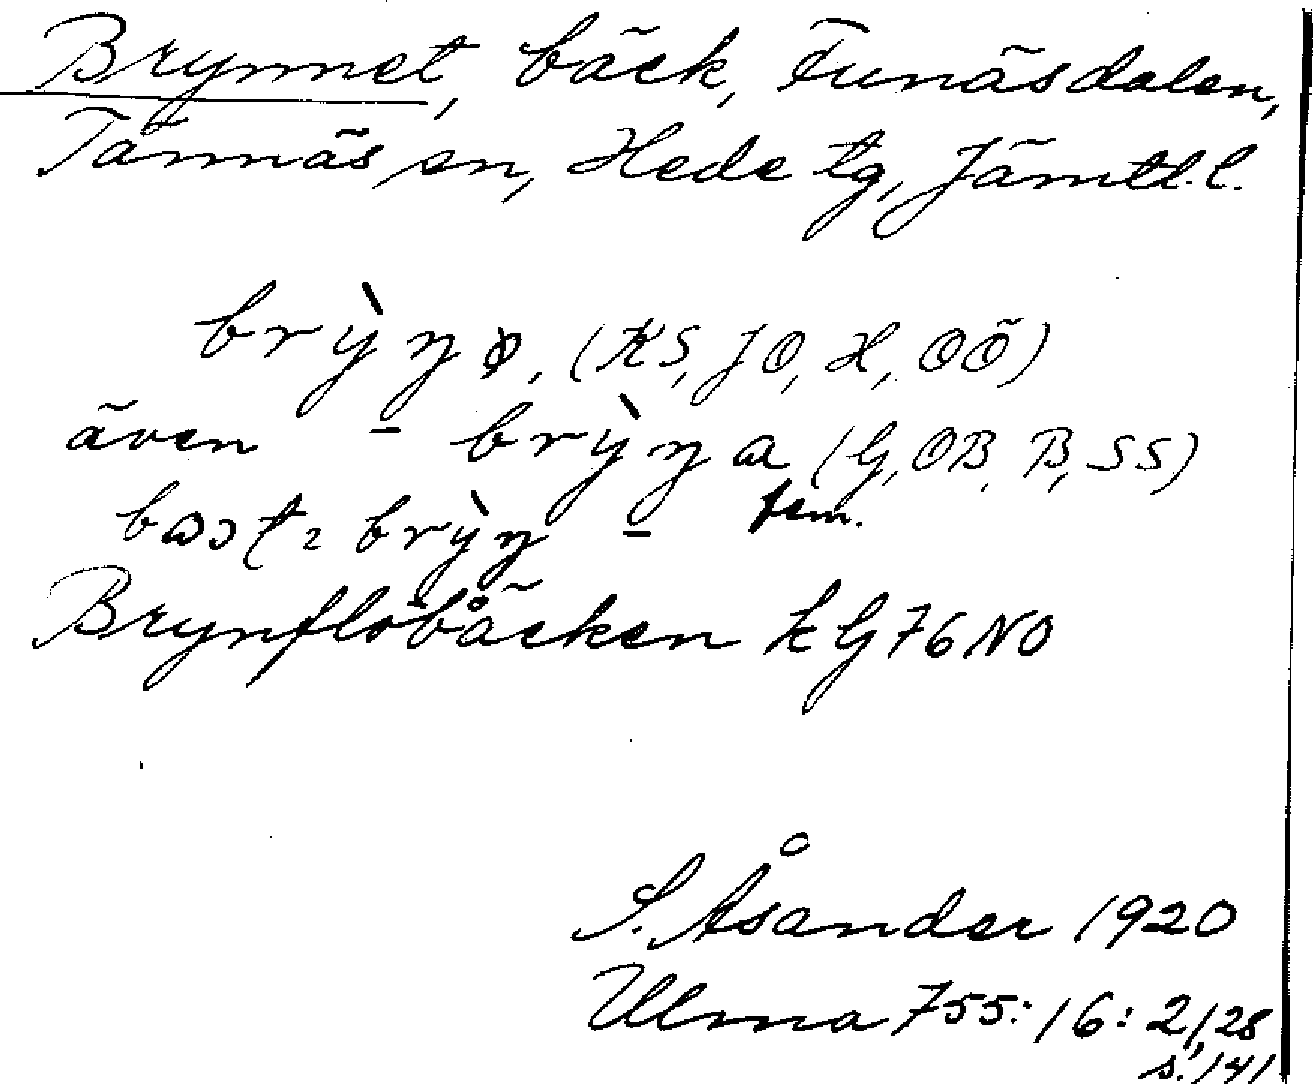 Brynnet, bäck, Funäsdalen,
Tännäs sn, Hede tg, Jämtl.l.
brỳŋ, (KS, JO, H, OÖ)
även - brỳŋa (G, OB, B, SS)
brỳŋ - fem.
Brynflobäcken k G 76 NO
S. Åsander 1920
Ulma 755:16: 2,28
s. 141